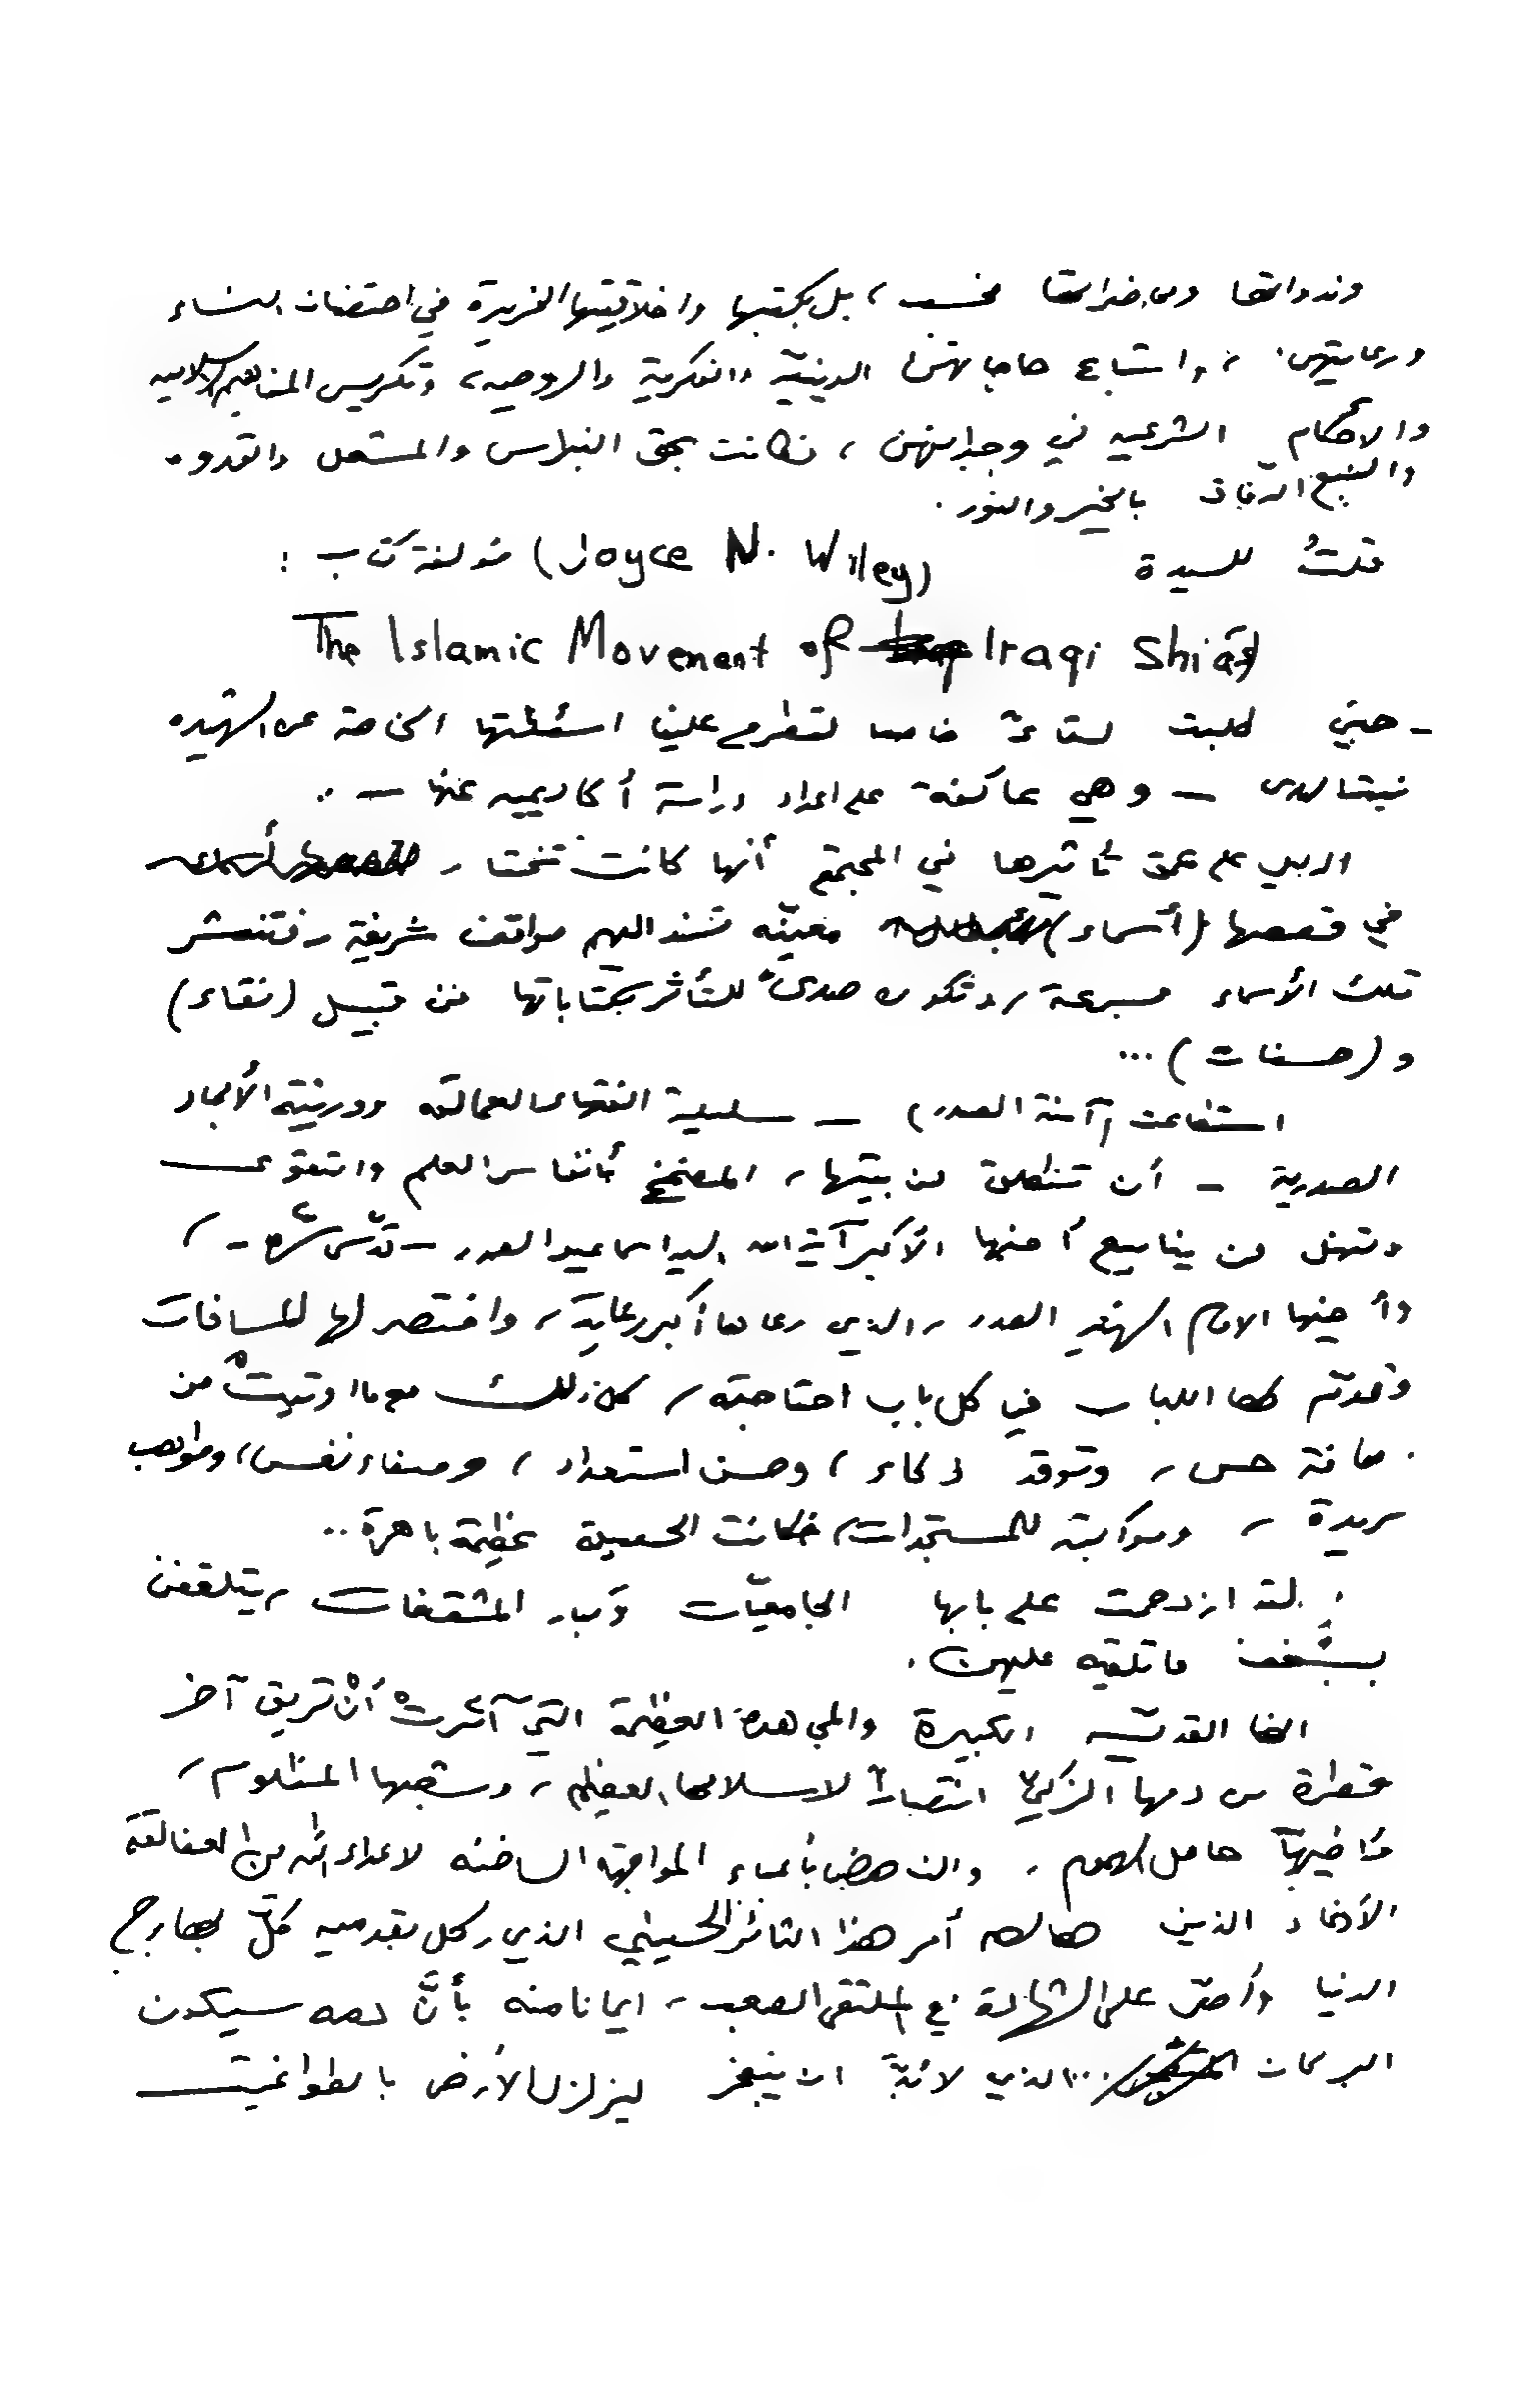 وندواتها ومحاضراتها فحسب، بل بكتبها واخلاقيتها الفريدة في احتضان النساء
ورعايتهن، واشباع حاجاتهن الدينية والفكرية والروحيه، وتكريس المفاهيم الاسلاميه
والأحكام الشرعيه في وجدانهن، فكانت بحق النبراس والمشعل والقدوه
والنبع الدفّاق بالخير والنور.
قلتُ للسيدة (Joyce N. Wiley) مؤلفة كتاب :
The Islamic Movement of Iraqi Shi'as
- حين طلبت لقاءً خاصا لتطرح علينا اسئلتها الخاصة عن الشهيده
بنت الهدى - وهي عاكفة على اعداد دراسة أكاديميه عنها - ..
الدليل على عمق تأثيرها في المجتمع أنها كانت تختار
في قصصها (أسماء) معيّنه تسند اليهم مواقف شريفة، فتنتشر
تلك الأسماء بسرعة، وتكون صدىً للتأثر بكتاباتها من قبيل (نقاء)
و (حسنات) ...
استطاعت (آمنة الصدر) - سليلة الفقهاء العمالقه ووريثة الأمجاد
الصدرية - أن تنطلق من بيتها، المضمّخ بأنفاس العلم والتقوى
وتنهل من ينابيع أخيها الأكبر آية الله السيد اسماعيل الصدر - قدّس سرّه -،
وأخيها الامام الشهيد الصدر، الذي رعاها أكبر رعاية، واختصر لها المسافات
وقدّم لها اللباب في كل باب احتاجته، كل ذلك مع ما اوتيتْ من
رهافة حس، وتوقد ذكاء، وحسن استعداد، وصفاء نفس، ومواهب
فريدة، ومواكبة للمستجدات، فكانت الحصيلة عظيمة باهرة..
لقد ازدحمت على بابها الجامعيّات وكبار المثقفات، يتلقفن
بشغف ما تلقيه عليهن.
انها القدّيسه الكبيرة والمجاهدة العظيمة التي آثرتْ أنْ تريق آخر
قطرة من دمها الزكيّ انتصاراً لاسلامها العظيم، وشعبها المظلوم،
وأخيها حامل الهموم، والناهض بأعباء المواجهة الساخنه لاعداء الله من العفالقة
الأوغاد الذين هالهم أمر هذا الثائر الحسيني الذي ركل بقدميه كلّ بهارج
الدنيا وأصرّ على الشهادة في الملتقى الصعب، ايمانا منه بأنَّ دمه سيكون
البركان ... الذي لابُدّ ان ينفجر ليزلزل الأرض بالطواغيت